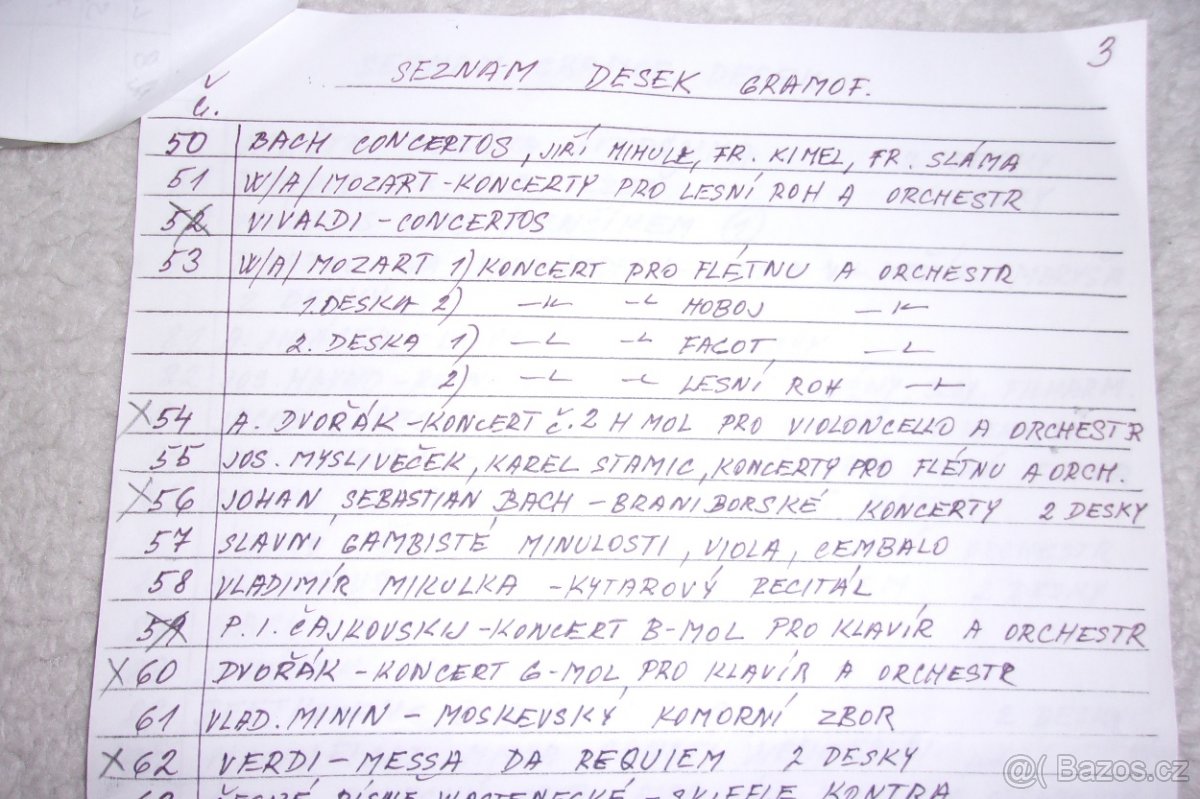 3
SEZNAM DESEK GRAMOF.
Č.
50 BACH CONCERTOS, JIŘÍ MIHULE, FR. KIMEL, FR. SLÁMA
51 W/A/MOZART-KONCERTY PRO LESNÍ ROH A ORCHESTR
52 VIVALDI-CONCERTOS
53 W/A/MOZART 1) KONCERT PRO FLÉTNU A ORCHESTR
1. DESKA 2) —〃— —〃— HOBOJ —〃—
2. DESKA 1) —〃— —〃— FAGOT, —〃—
2) —〃— —〃— LESNÍ ROH —〃—
X 54 A. DVOŘÁK-KONCERT č.2 H MOL PRO VIOLONCELLO A ORCHESTR
55 JOS. MYSLIVEČEK, KAREL STAMIC, KONCERTY PRO FLÉTNU A ORCH.
X 56 JOHAN SEBASTIAN BACH-BRANIBORSKÉ KONCERTY 2 DESKY
57 SLAVNÍ GAMBISTÉ MINULOSTI, VIOLA, CEMBALO
58 VLADIMÍR MIKULKA -KYTAROVÝ RECITÁL
59 P.I. ČAJKOVSKIJ-KONCERT B-MOL PRO KLAVÍR A ORCHESTR
X 60 DVOŘÁK-KONCERT G-MOL PRO KLAVÍR A ORCHESTR
61 VLAD. MININ - MOSKEVSKÝ KOMORNÍ ZBOR
X 62 VERDI-MESSA DA REQUIEM 2 DESKY
PÍSNĚ - SKIFFLE KONTRA
@( Bazos.cz